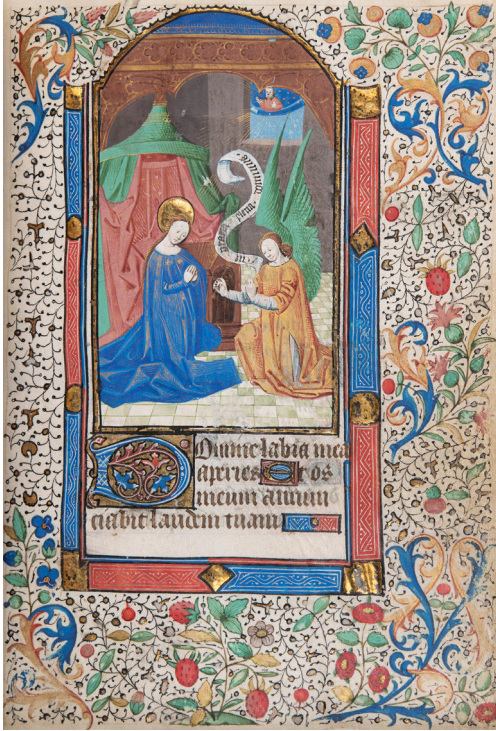 Domine labia mea
aperies Et os
meum annun
ciabit laudem tuam